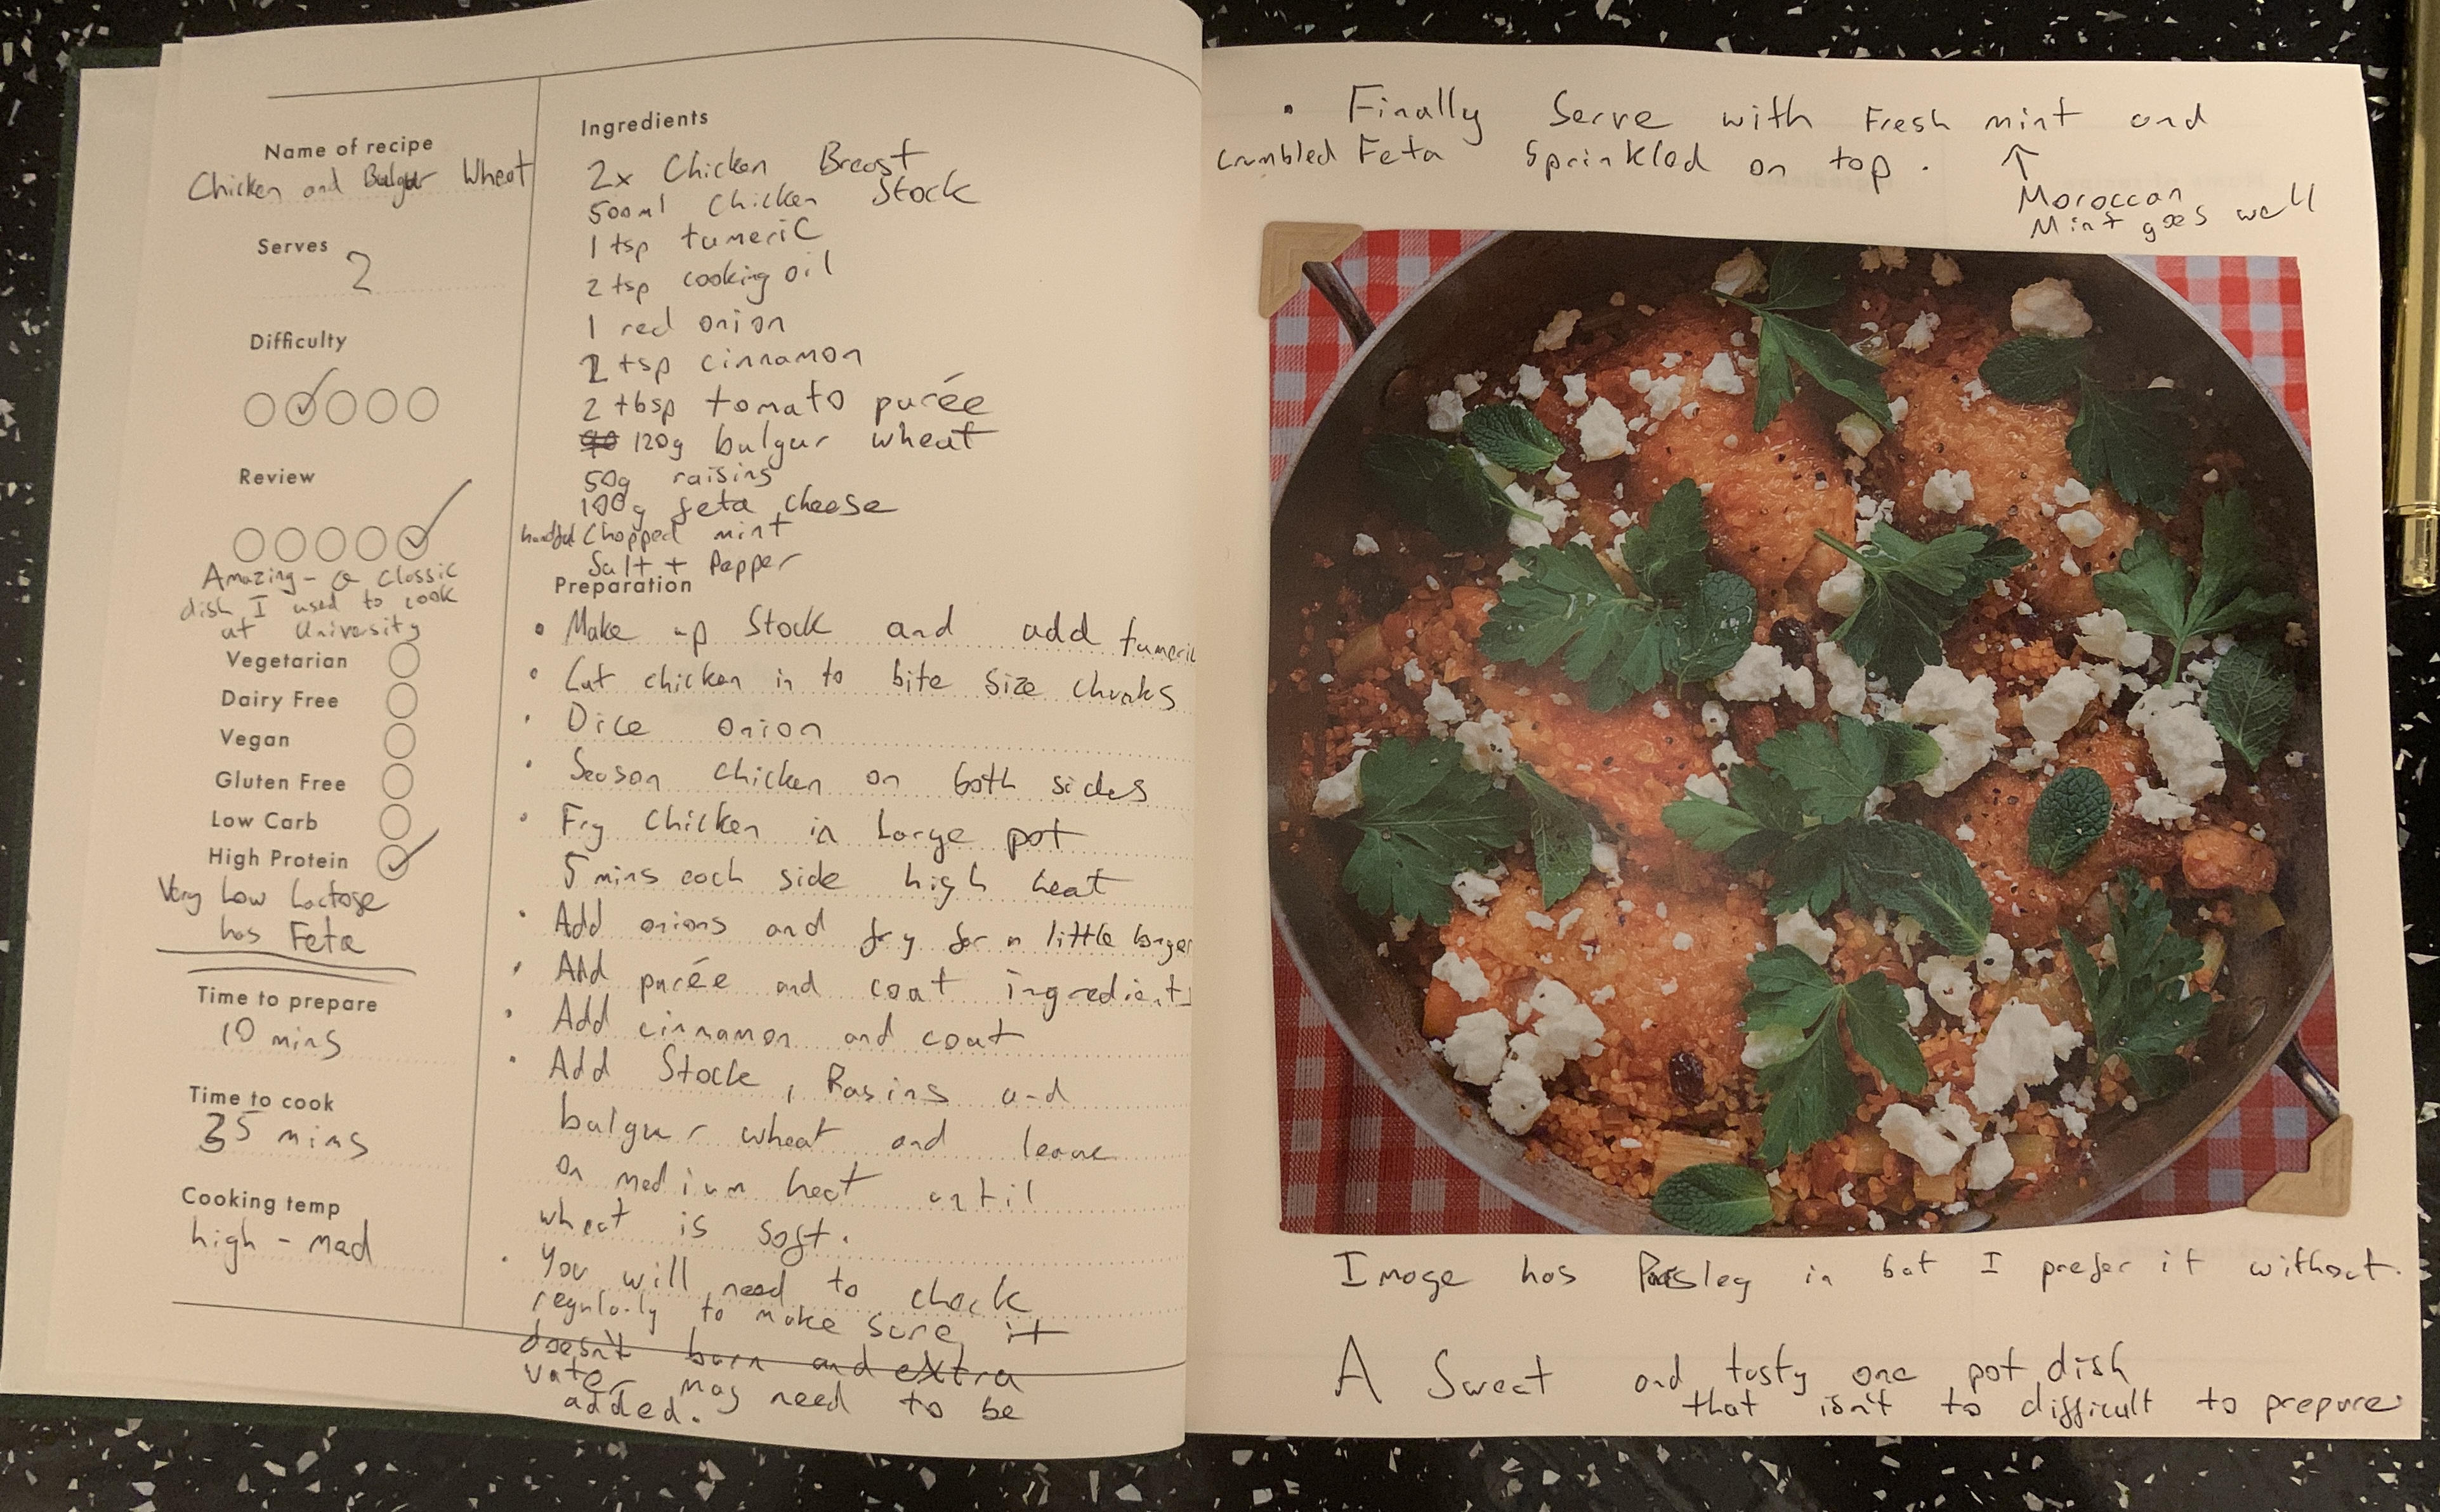 Name of recipe
Chicken and Bulgur Wheat
Serves
2
Difficulty
Review
Amazing - a classic
dish I used to cook
at University
Vegetarian
Dairy Free
Vegan
Gluten Free
Low Carb
High Protein
Very Low Lactose
has Feta
Time to prepare
10 mins
Time to cook
35 mins
Cooking temp
high - med
Ingredients
2x Chicken Breast
500ml Chicken Stock
1 tsp tumeric
2 tsp cooking oil
1 red onion
tsp cinnamon
2 tbsp tomato purée
120g bulgur wheat
50g raisins
100g feta cheese
handful Chopped mint
Salt + Pepper
Preparation
• Make up Stock and add tumeric
• Cut chicken in to bite size chunks
• Dice onion
• Season chicken on both sides
• Fry chicken in large pot
5 mins each side high heat
• Add onions and fry for a little longer
• Add purée and coat ingredients
• Add cinnamon and coat
• Add Stock, Rasins and
bulgur wheat and leave
on medium heat until
wheat is soft.
• You will need to check
regularly to make sure it
doesn't burn and extra
water may need to be
added.
• Finally Serve with Fresh mint and
crumbled Feta Sprinkled on top.
↑
Moroccan
Mint goes well
Image has Parsley in but I prefer it without.
A Sweet and tasty one pot dish
that isn't to difficult to prepare